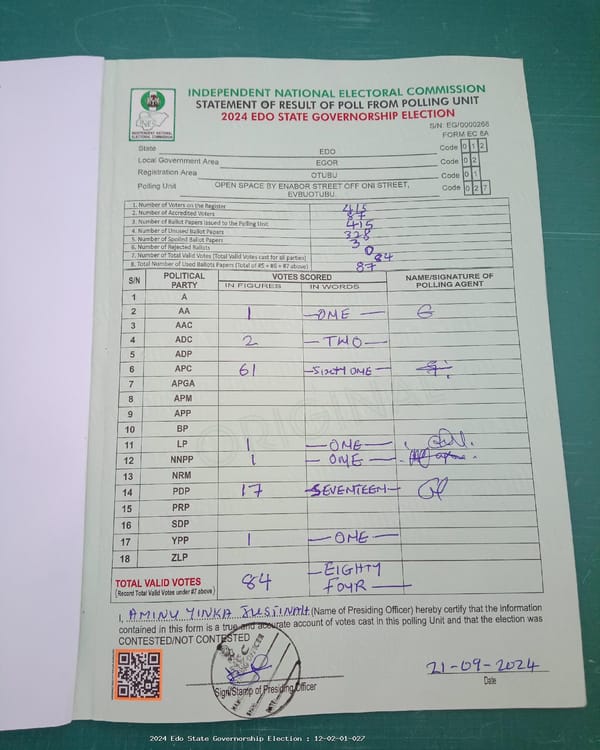 INDEPENDENT NATIONAL ELECTORAL COMMISSION
STATEMENT OF RESULT OF POLL FROM POLLING UNIT
2024 EDO STATE GOVERNORSHIP ELECTION
INEC
INDEPENDENT NATIONAL
ELECTORAL COMMISSION
S/N: EG/0000268
FORM EC 8A
State EDO Code 0 1 2
Local Government Area EGOR Code 0 2
Registration Area OTUBU Code 0 1
Polling Unit OPEN SPACE BY ENABOR STREET OFF ONI STREET, EVBUOTUBU. Code 0 2 7
1. Number of Voters on the Register 415
2. Number of Accredited Voters 87
3. Number of Ballot Papers Issued to the Polling Unit 415
4. Number of Unused Ballot Papers 328
5. Number of Spoiled Ballot Papers 3
6. Number of Rejected Ballots 0
7. Number of Total Valid Votes (Total Valid Votes cast for all parties) 84
8. Total Number of Used Ballots Papers (Total of #5 + #6 + #7 above) 87
S/N POLITICAL PARTY VOTES SCORED NAME/SIGNATURE OF POLLING AGENT
IN FIGURES IN WORDS
1 A
2 AA 1 —ONE—
3 AAC
4 ADC 2 —TWO—
5 ADP
6 APC 61 —SIXTY ONE—
7 APGA
8 APM
9 APP
10 BP
11 LP 1 —ONE—
12 NNPP 1 —ONE—
13 NRM
14 PDP 17 —SEVENTEEN—
15 PRP
16 SDP
17 YPP 1 —ONE—
18 ZLP
TOTAL VALID VOTES 84 —EIGHTY FOUR—
(Record Total Valid Votes under #7 above)
ORIGINAL
I, AMINU YINKA JUSTINAH (Name of Presiding Officer) hereby certify that the information
contained in this form is a true and accurate account of votes cast in this polling Unit and that the election was
CONTESTED/NOT CONTESTED
Sign/Stamp of Presiding Officer
21-09-2024
Date
2024 Edo State Governorship Election : 12-02-01-027